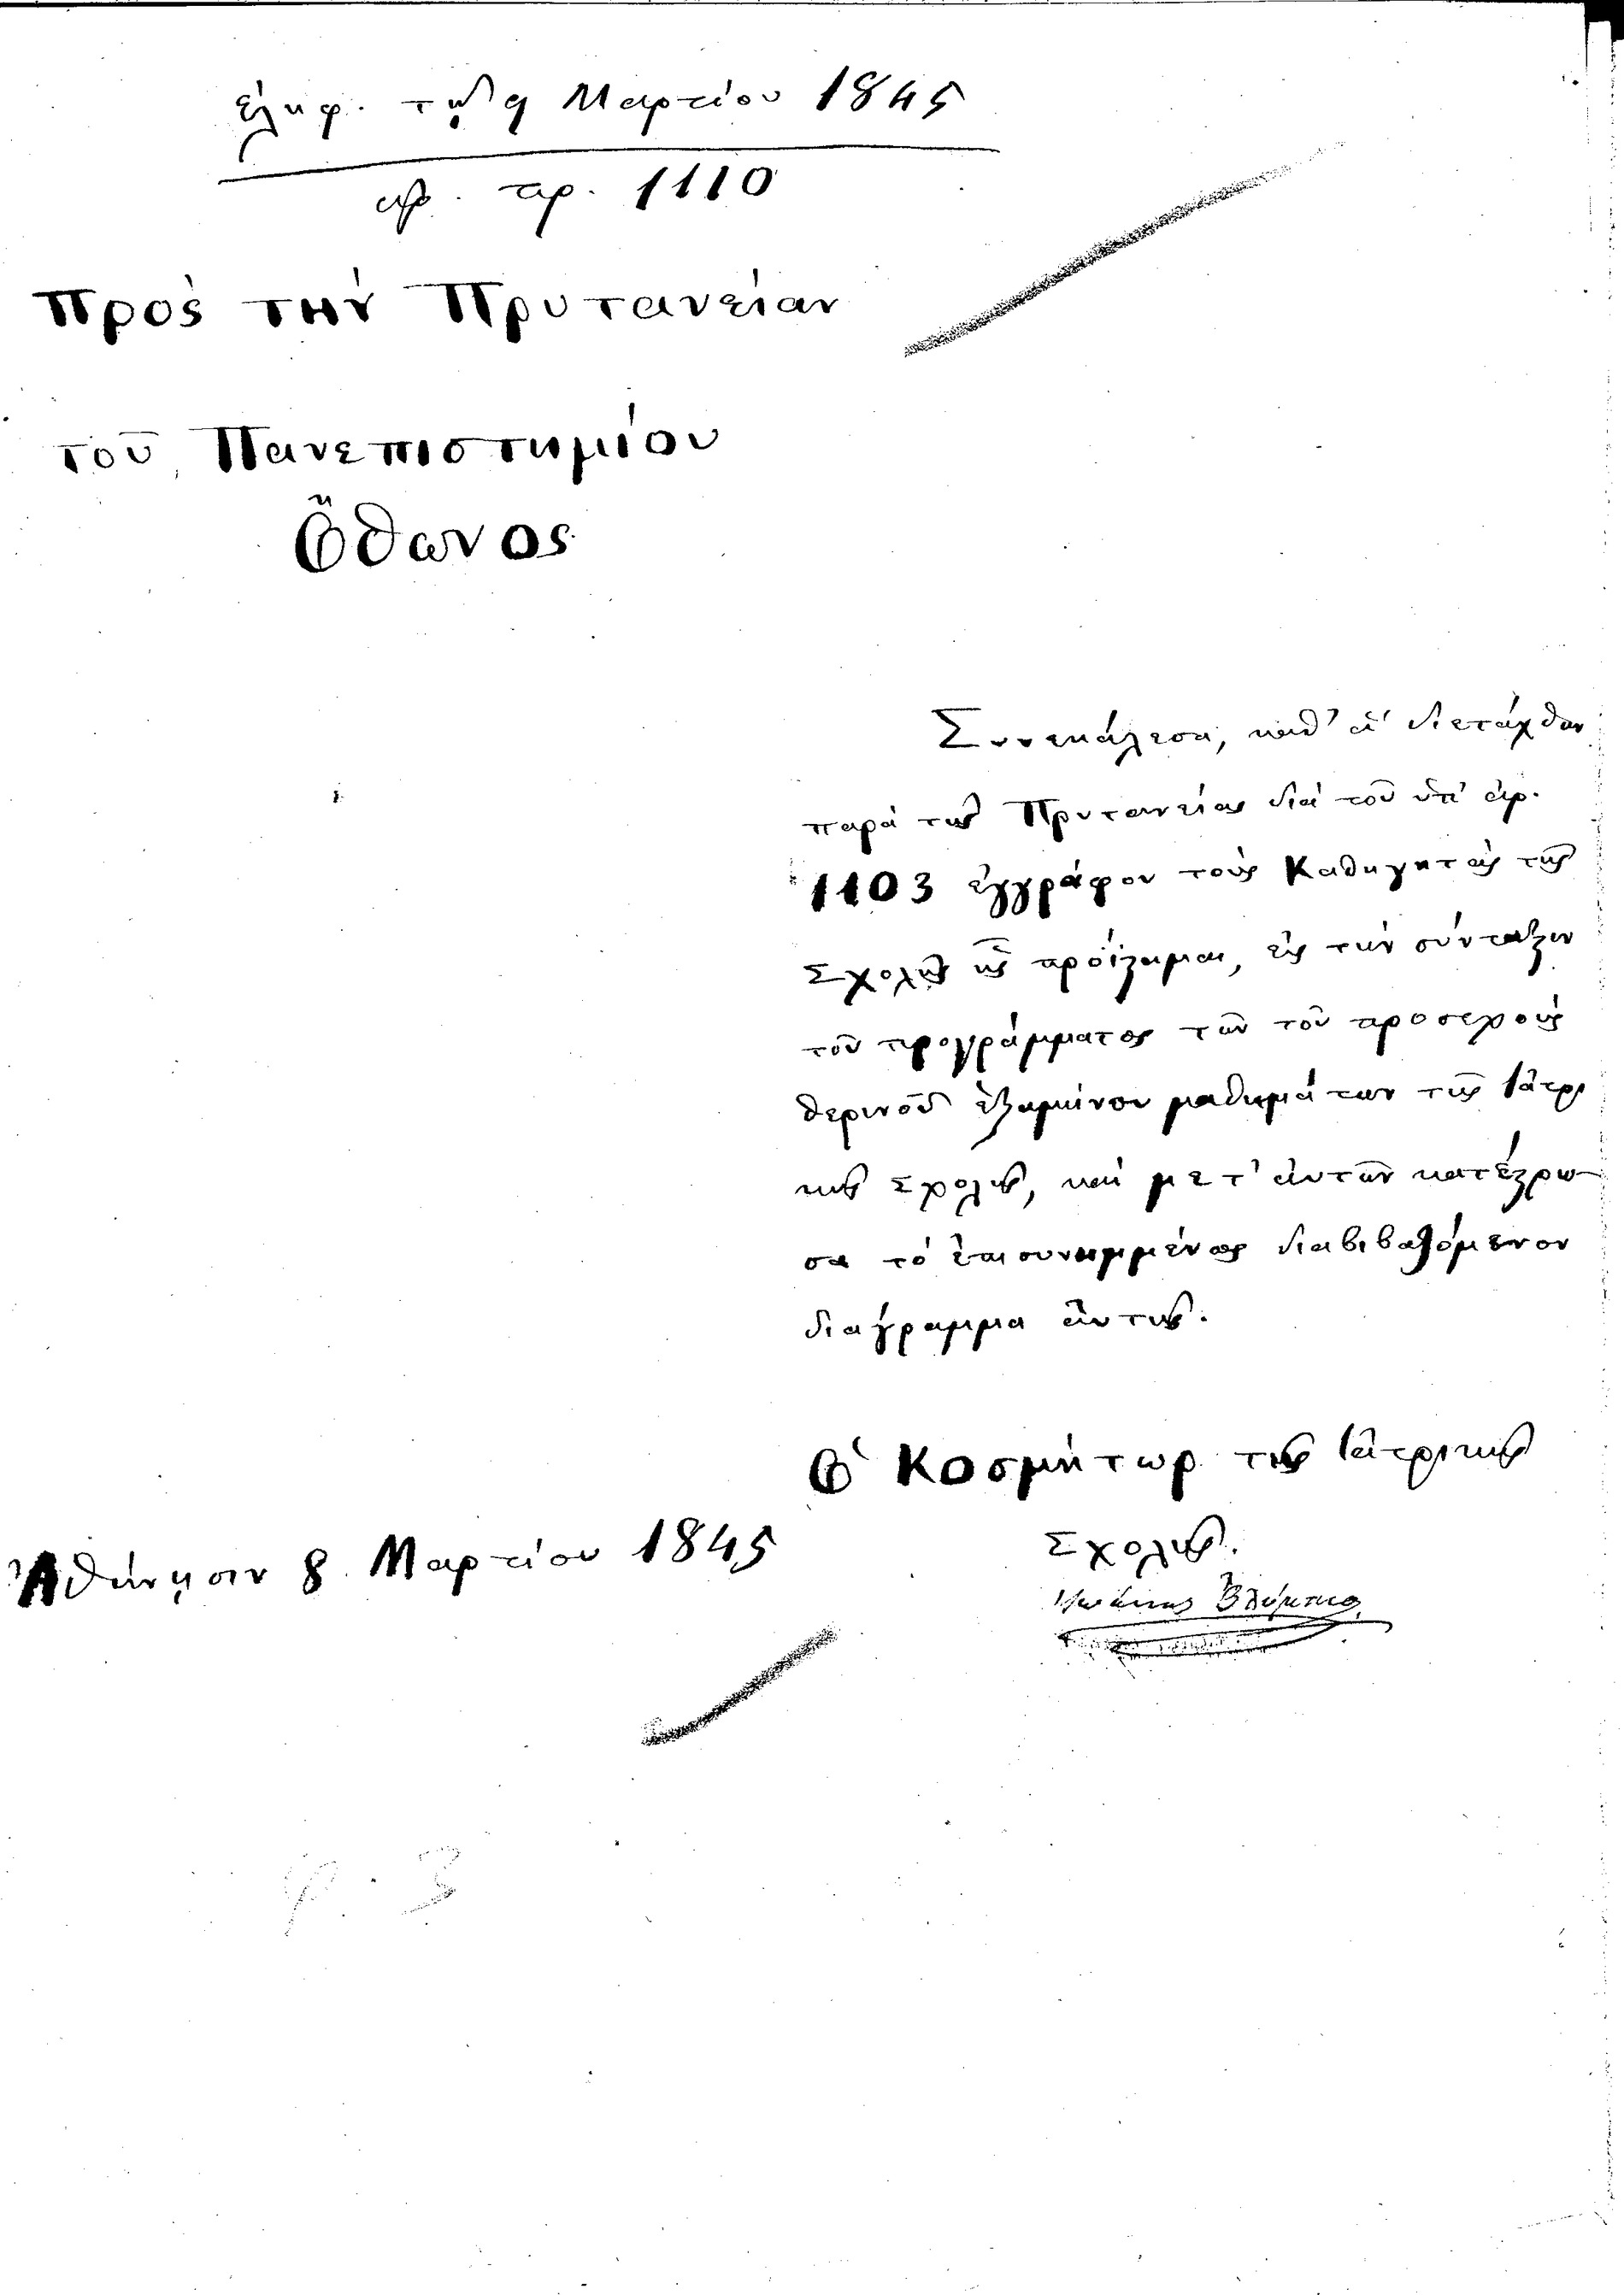 ἐλήφ. τῇ 9 Μαρτίου 1845
ἀρ. πρ. 1110
Πρὸς τὴν Πρυτανείαν
τοῦ Πανεπιστημίου
Ὄθωνος
Συνεκάλεσα, καθ' ἃ διετάχθην
παρὰ τῆς Πρυτανείας διὰ τοῦ ὑπ' ἀρ.
1103 ἐγγράφου τοὺς Καθηγητὰς τῆς
Σχολῆς ἧς προΐσταμαι, εἰς τὴν σύνταξιν
τοῦ προγράμματος τῶν τοῦ προσεχοῦς
θερινοῦ ἑξαμήνου μαθημάτων τῆς Ἰατρι
κῆς Σχολῆς, καὶ μετ' αὐτῶν κατέστρω-
σα τὸ ἐπισυνημμένως διαβιβαζόμενον
διάγραμμα αὐτῆς.
Ὁ Κοσμήτωρ τῆς Ἰατρικῆς
Σχολῆς.
Ἀθήνησιν 8 Μαρτίου 1845
φ. 3